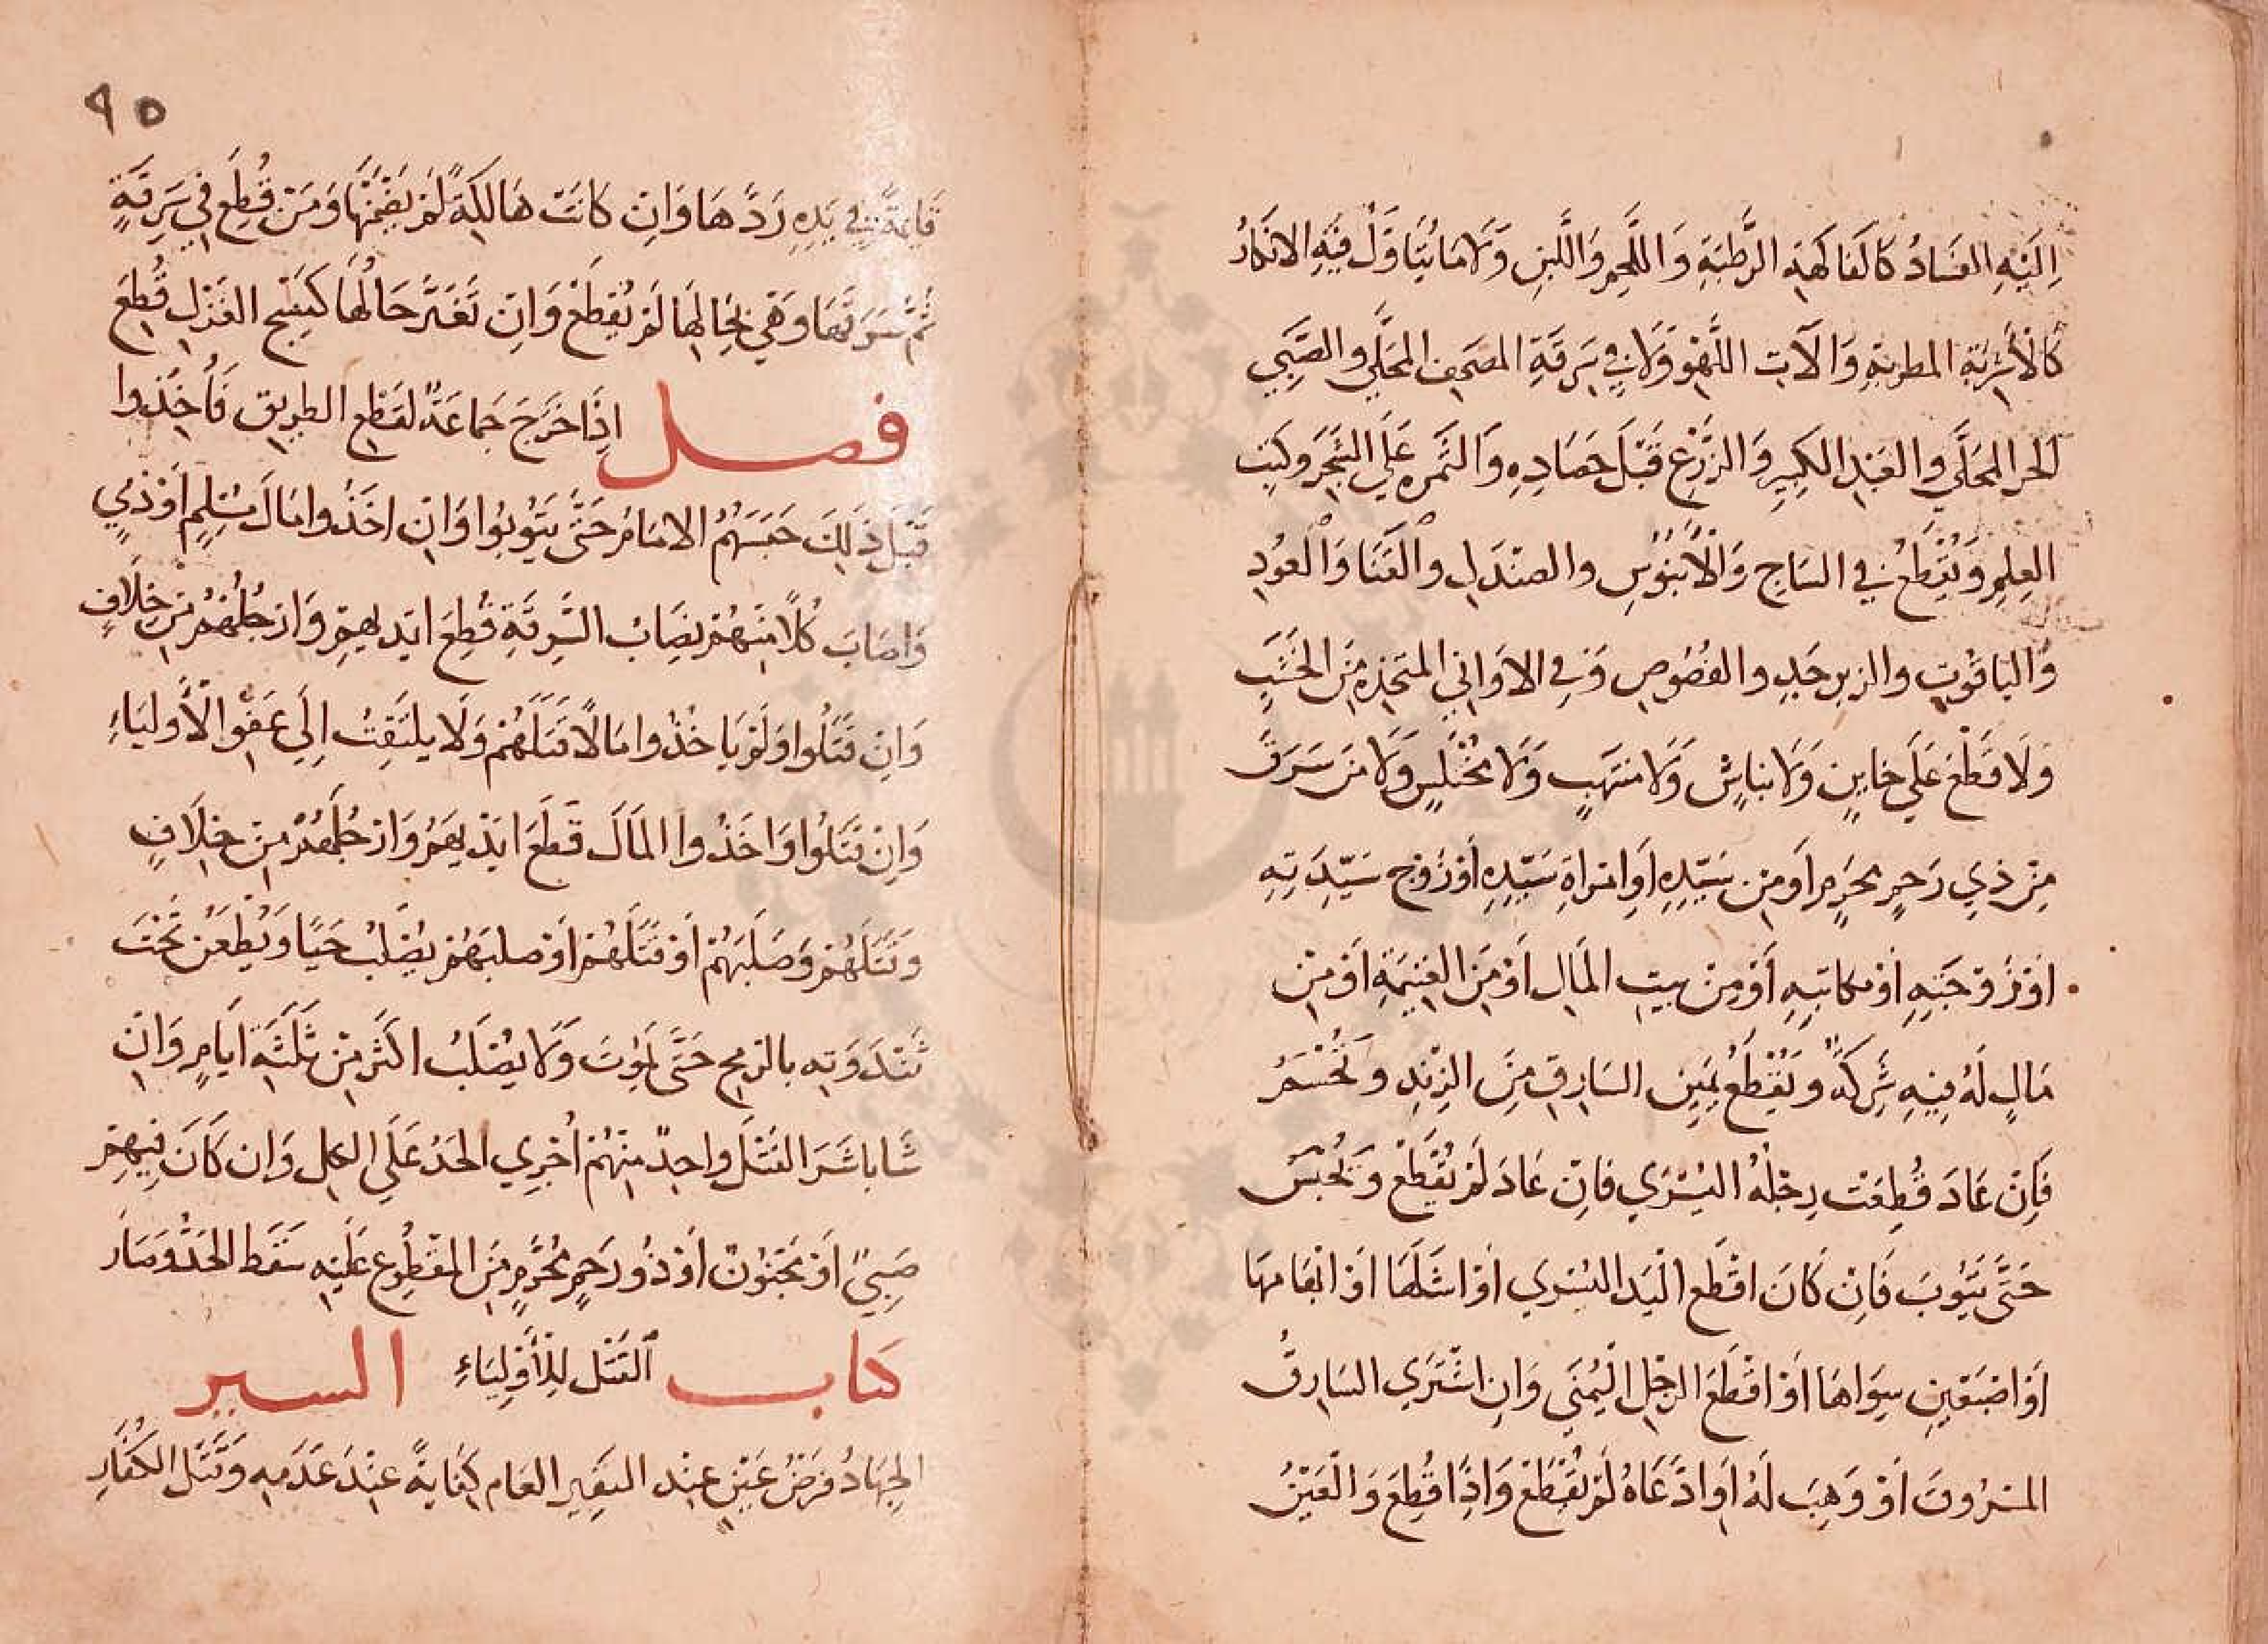 اِلَيْهِ الفَسَادُ كَالفَاكهَةِ الرَّطبَةِ وَاللَّحِمِ وَاللَّبَنِ وَلَا مَا يُتَاوَلُ فيْهِ الانكَارُ
كَالأَشْرِبَةِ المطربَةِ وَالآلَاتِ اللَّهْوِ وَلَا فِي سَرقَةِ المصحَفِ المحَلَّي والصَّبِي
الحر المحَلَّي والعَبْدِ الكَبِيرِ وَالزَّرْعِ قَبْلَ حَصَادِهِ وَالثَّمَره عَلَي الشَّجَرَ وكتب
العِلمِ وَيُقْطَعُ فِي السَاجِ وَالْأَبنُوسِ والصنْدَلِ والقَنَا وَالْعُودِ
وَاليَاقوتِ والزبرجَدِ والفُصُوصِ وَفِي الاوَاني المتخِذهِ مِنَ الخشَبِ
وَلَا قَطْعَ عَلَي خاينٍ وَلَا نبَاشٍ وَلَا منتَهبٍ وَلَا مختَلسٍ وَلَا مَن سَرَقَ
مِنْ ذِي رَحِمٍ محَرَمٍ اَو مِن سَيّدِهِ اَوِ امْراةِ سَيّدِهِ اَوْ زَوْجِ سَيّدَتِهِ
اَوْ زَوْجَتِهِ اَوْ مكاتَبِهِ اَوْ مِنْ بيتِ المَالِ اَوْ مِنَ الغنِيمَةِ اَوْ مِنْ
مَالٍ لَهُ فِيهِ شِركَةٌ وَيُقْطَعُ يَمِينِ السَارِقِ مِنَ الزندِ وتُحْسَمُ
فَاِنْ عَادَ قُطِعَتْ رِجْلهُ اليُسْرَي فَاِنْ عَادَ لَمْ يُقْطَعْ وَيُحْبَسُ
حَتَّى يَتُوْبَ فَاِنْ كَانَ اقْطَع الْيَدِ اليُسْرَي اَوْ اشَلَهَا اَوْ ابْهَامهَا
اَوْ اصْبَعَينِ سِوَاهَا اَوْ اقْطَعَ الرِّجْلِ الْيُمْنَي وَاِنِ اشْتَرَي السَارِقُ
المَسْرُوقَ اَوْ وَهِبَ لَهُ اَوِ ادَّعَاهُ لَمْ يُقْطَعْ وَاِذَا قُطِعَ وَالْعَيْنُ
٩٥
قَايمَةٌ فِي يَدِهِ رَدَّهَا وَاِنْ كَانَتْ هَالِكَةً لَمْ يَضْمَنْهَا وَمَنْ قُطِعَ في سَرِقَةٍ
ثُمَّ سَرَقَهَا وَهْيَ بِحَالِهَا لَمْ يُقْطَعْ وَاِنْ تَغَيَّرَ حَالُهَا كَنَسْجِ الغَزْلِ قُطِعَ
فصل اِذَا خَرَجَ جَمَاعَةٌ لقَطْعِ الطريقِ فَأُخِذُوا
قَبْلَ ذَلِكَ حَبَسَهُمُ الامَامُ حَتَّى يَتُوبُوا وَاِنْ اخَذُوا مَالَ مُسْلِمٍ اَوْ ذِمِيٍ
وَاصَابَ كُلًا مِنهُمْ نِصَابُ السَّرِقَةِ قُطِعَ ايَديهِمْ وَارْجُلُهُمْ مِنْ خِلَافٍ
وَاِنْ قتَلُوا وَلَمْ يَاخُذُوا مَالًا قَتَلَهُمْ وَلَا يلتَفِتُ اِلَي عَفْوِ الْأَوليَاءِ
وَاِنْ قَتَلُوا وَاخَذُوا المَالَ قَطَعَ ايْدِيهَمُ وَارْجُلَهُمْ مِنْ خِلَافٍ
وَقَتَلَهُمْ وَصَلَبَهُمْ اَوْ قتَلَهُمْ اَوْ صلبَهُمْ يُصْلَبُ حَيًا وَيُطْعَنُ تَحْتَ
ثَنْدَوَتِهِ بالرُمحِ حَتَّى يَمُوْتَ وَلَا يُصْلَبُ اكثَرَ مِنْ ثَلَثَةِ ايَامٍ وَاِنْ
شَا باشَرَ القَتْلَ واحِدٌ مِنْهُمْ اُجْرِي الحَدُ عَلَي الكِل وَاِن كَانَ فِيهِمْ
صَبِيٌ اَوْ مَجْنُونٌ اَوْ ذُو رَحِمٍ مُحَّرَمٍ مِنَ المَقْطُوعِ عَلَيْهِ سَقَط الحَدُّ وَصَارَ
كتاب القَتْل لِلْأَوْلِيَاءِ السير
الجِهَادُ فرَضُ عَيْنٍ عِنْدِ النفِيرِ العَامِ كِفَايةً عِنْدَ عَدَمِهِ وَقَتَل الكُفّارِ